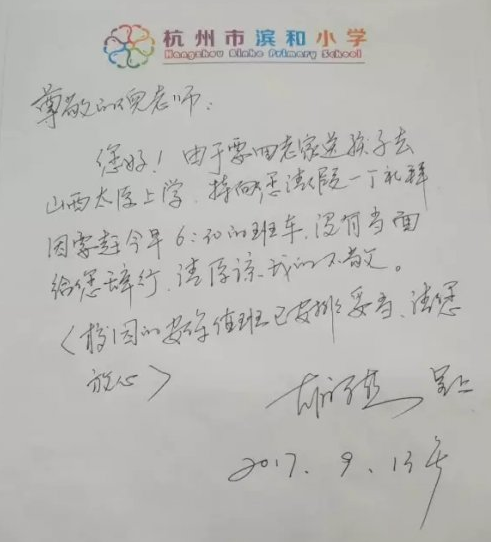 杭州市滨和小学
Hangzhou Binhe Primary School
尊敬的倪老师：
您好！由于要回老家送孩子去
山西大学上学，特向您请假一个礼拜
因需赶今早6:30的班车，没有当面
给您辞行，请原谅我的不敬。
〈校园的安保值班已安排妥当，请您
放心〉
呈上
2017.9.13号